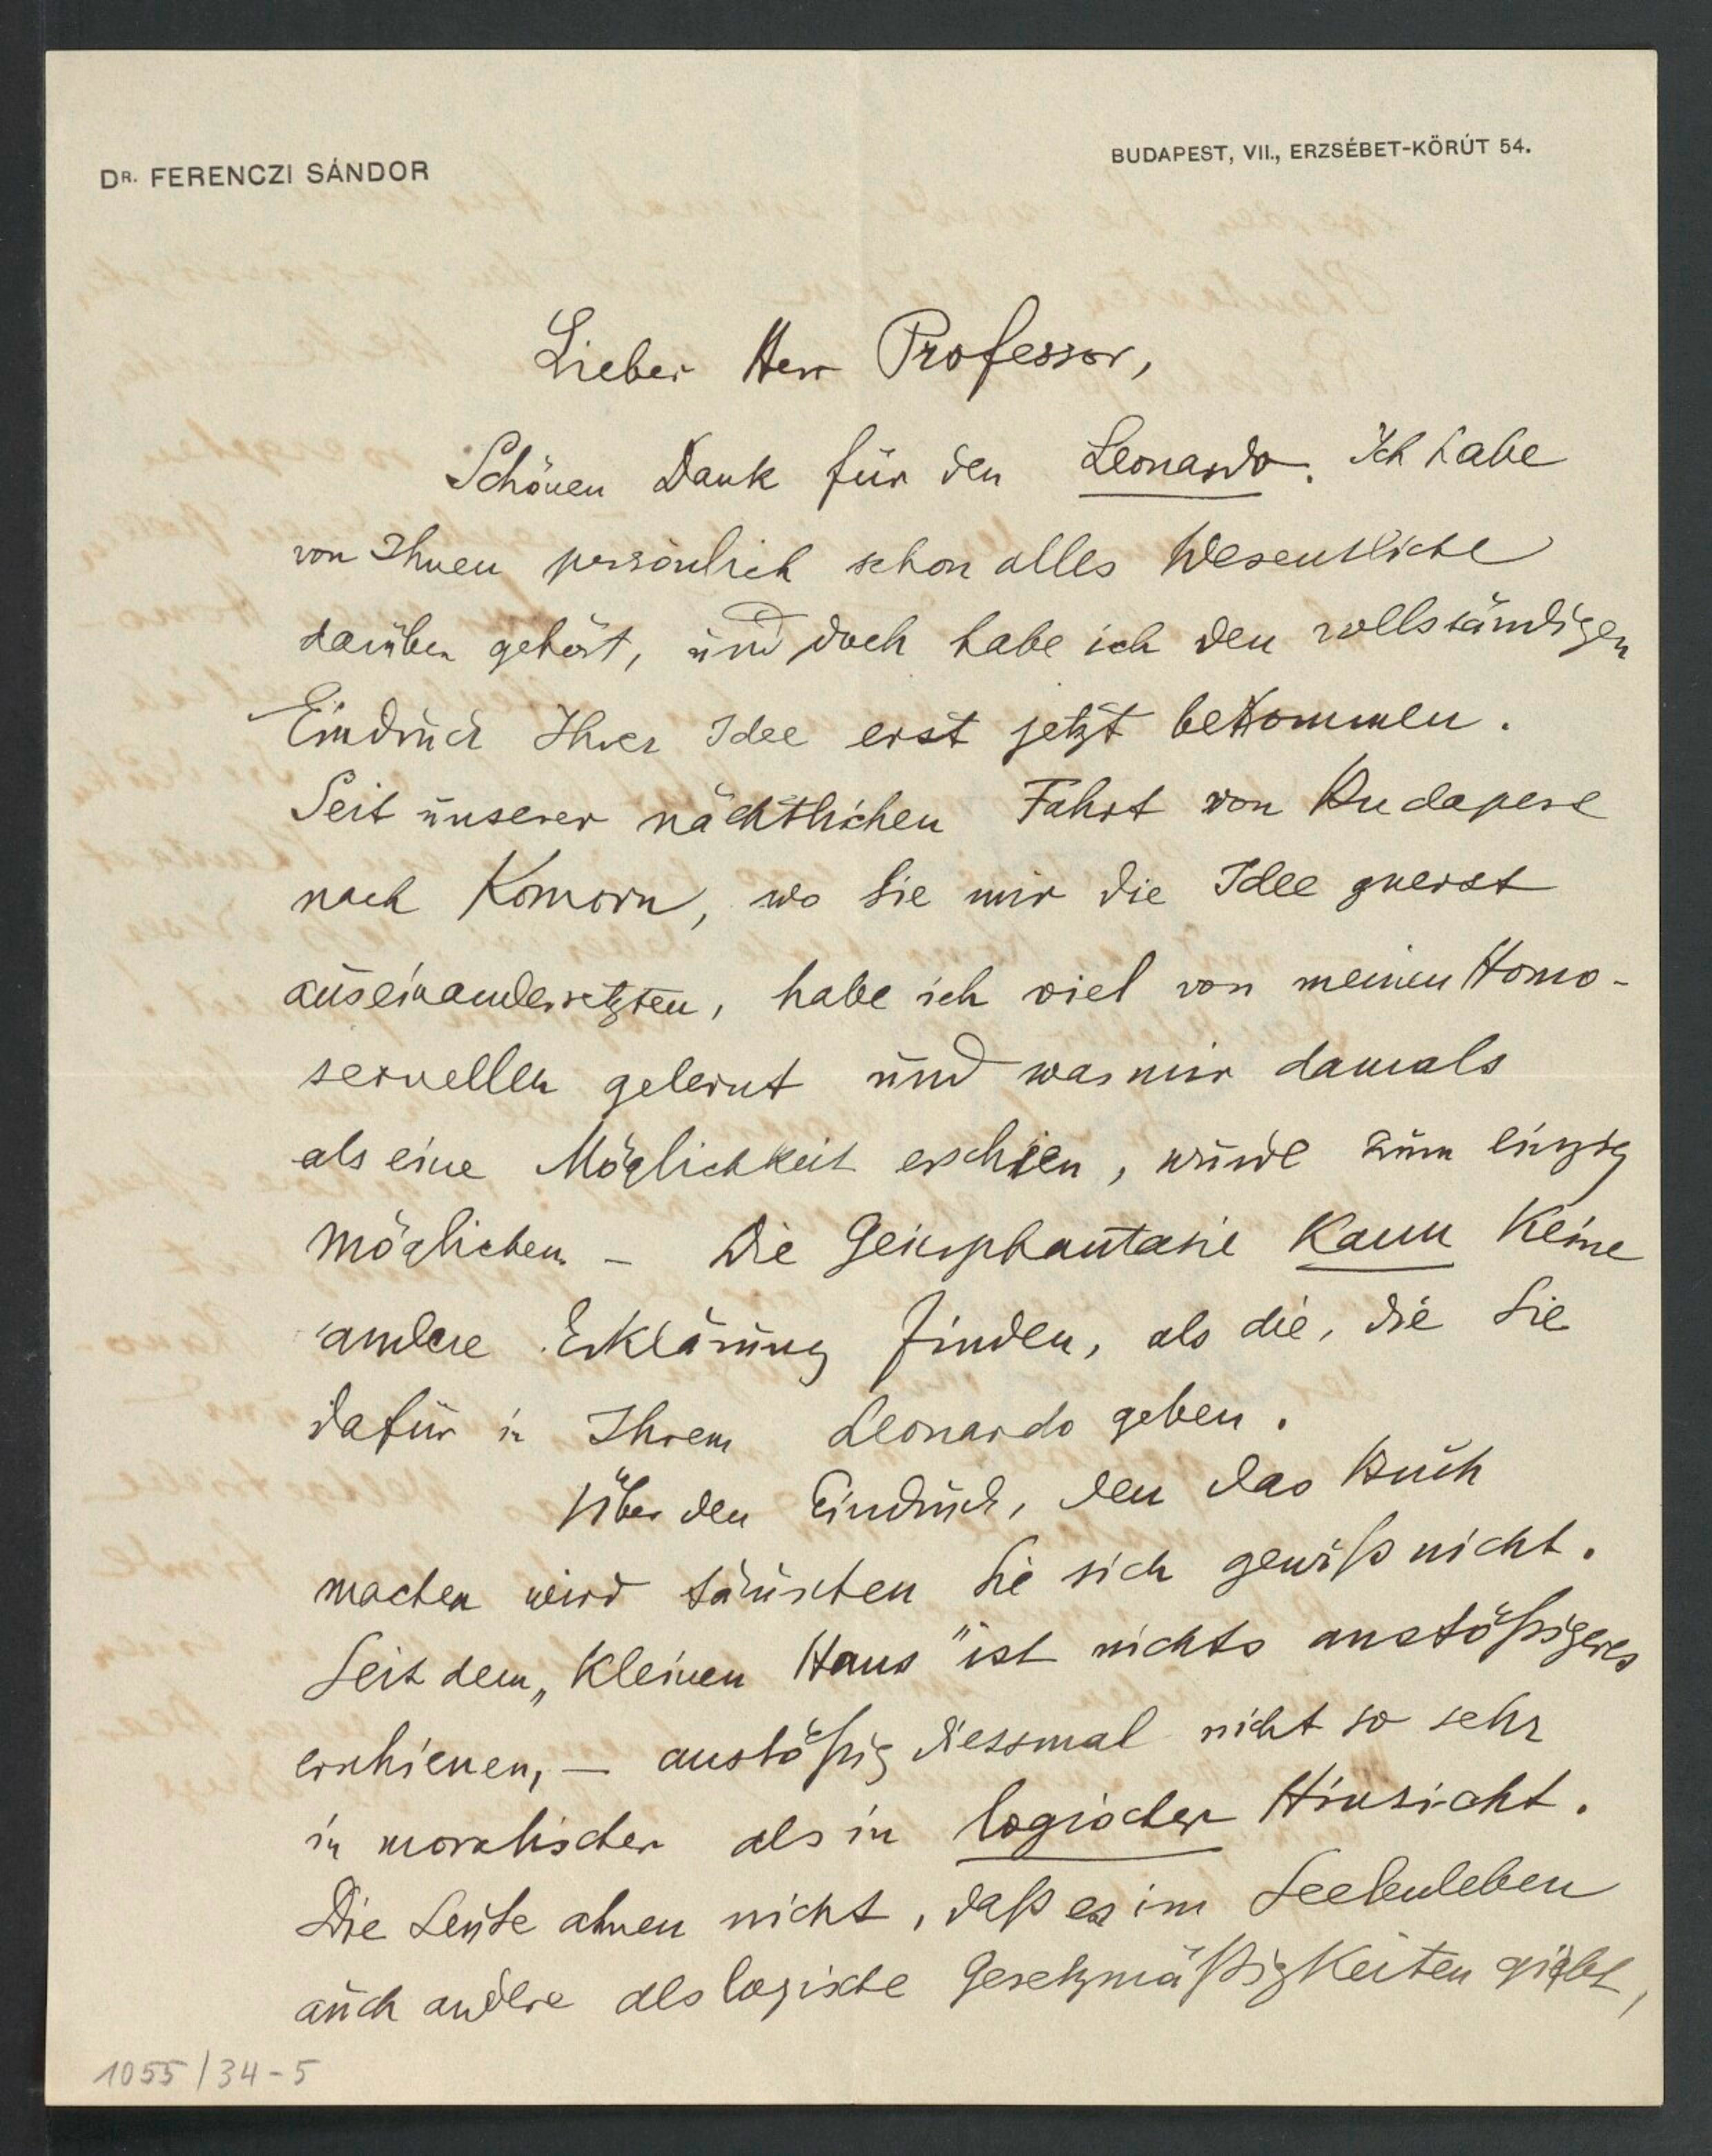 DR. FERENCZI SÁNDOR
BUDAPEST, VII., ERZSÉBET-KÖRÚT 54.
Lieber Herr Professor,
Schönen Dank für den Leonardo. Ich habe
von Ihnen persönlich schon alles Wesentliche
darüber gehört, und doch habe ich den vollständigen
Eindruck Ihrer Idee erst jetzt bekommen.
Seit unserer nächtlichen Fahrt von Budapest
nach Komorn, wo Sie mir die Idee zuerst
auseinandersetzten, habe ich viel von meinen Homo-
sexuellen gelernt und was mir damals
als eine Möglichkeit erschien, wurde zum einzig
möglichen. – Die Geierphantasie kann keine
andere Erklärung finden, als die, die Sie
dafür in Ihrem Leonardo geben.
Über den Eindruck, den das Buch
machen wird täuschen Sie sich gewiß nicht.
Seit dem „Kleinen Hans" ist nichts anstößigeres
erschienen, – anstößig diessmal nicht so sehr
in moralischer als in logischer Hinsicht.
Die Leute ahnen nicht, daß es im Seelenleben
auch andere als logische Gesetzmäßigkeiten giebt,
1055/34-5